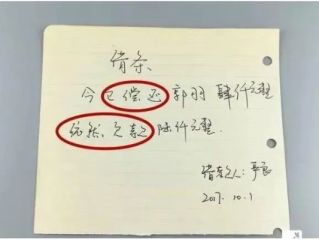 借条
今已偿还郭羽肆仟元整
仍然欠款陆仟元整.
借款人:李良
2017.10.1